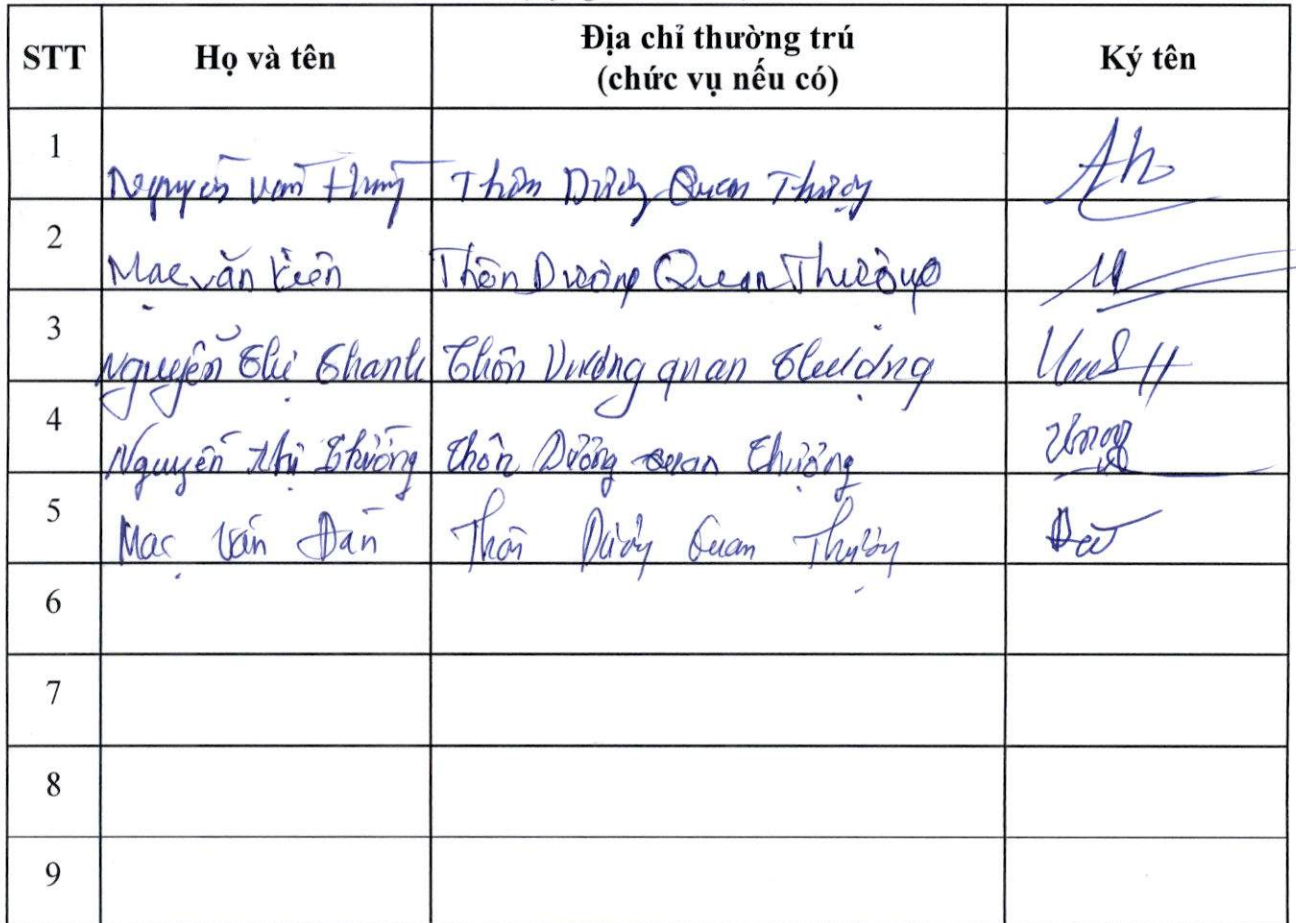 STT Họ và tên Địa chỉ thường trú (chức vụ nếu có) Ký tên
1 Nguyễn Văn Hùng Thôn Dương Quan Thượng
2 Mạc văn Kiên Thôn Dương Quan Thượng
3 Nguyễn Thị Thanh Thôn Dương quan Thượng
4 Nguyễn thị Thường thôn Dương quan Thượng
5 Mạc Văn Đàn Thôn Dương Quan Thượng
6
7
8
9